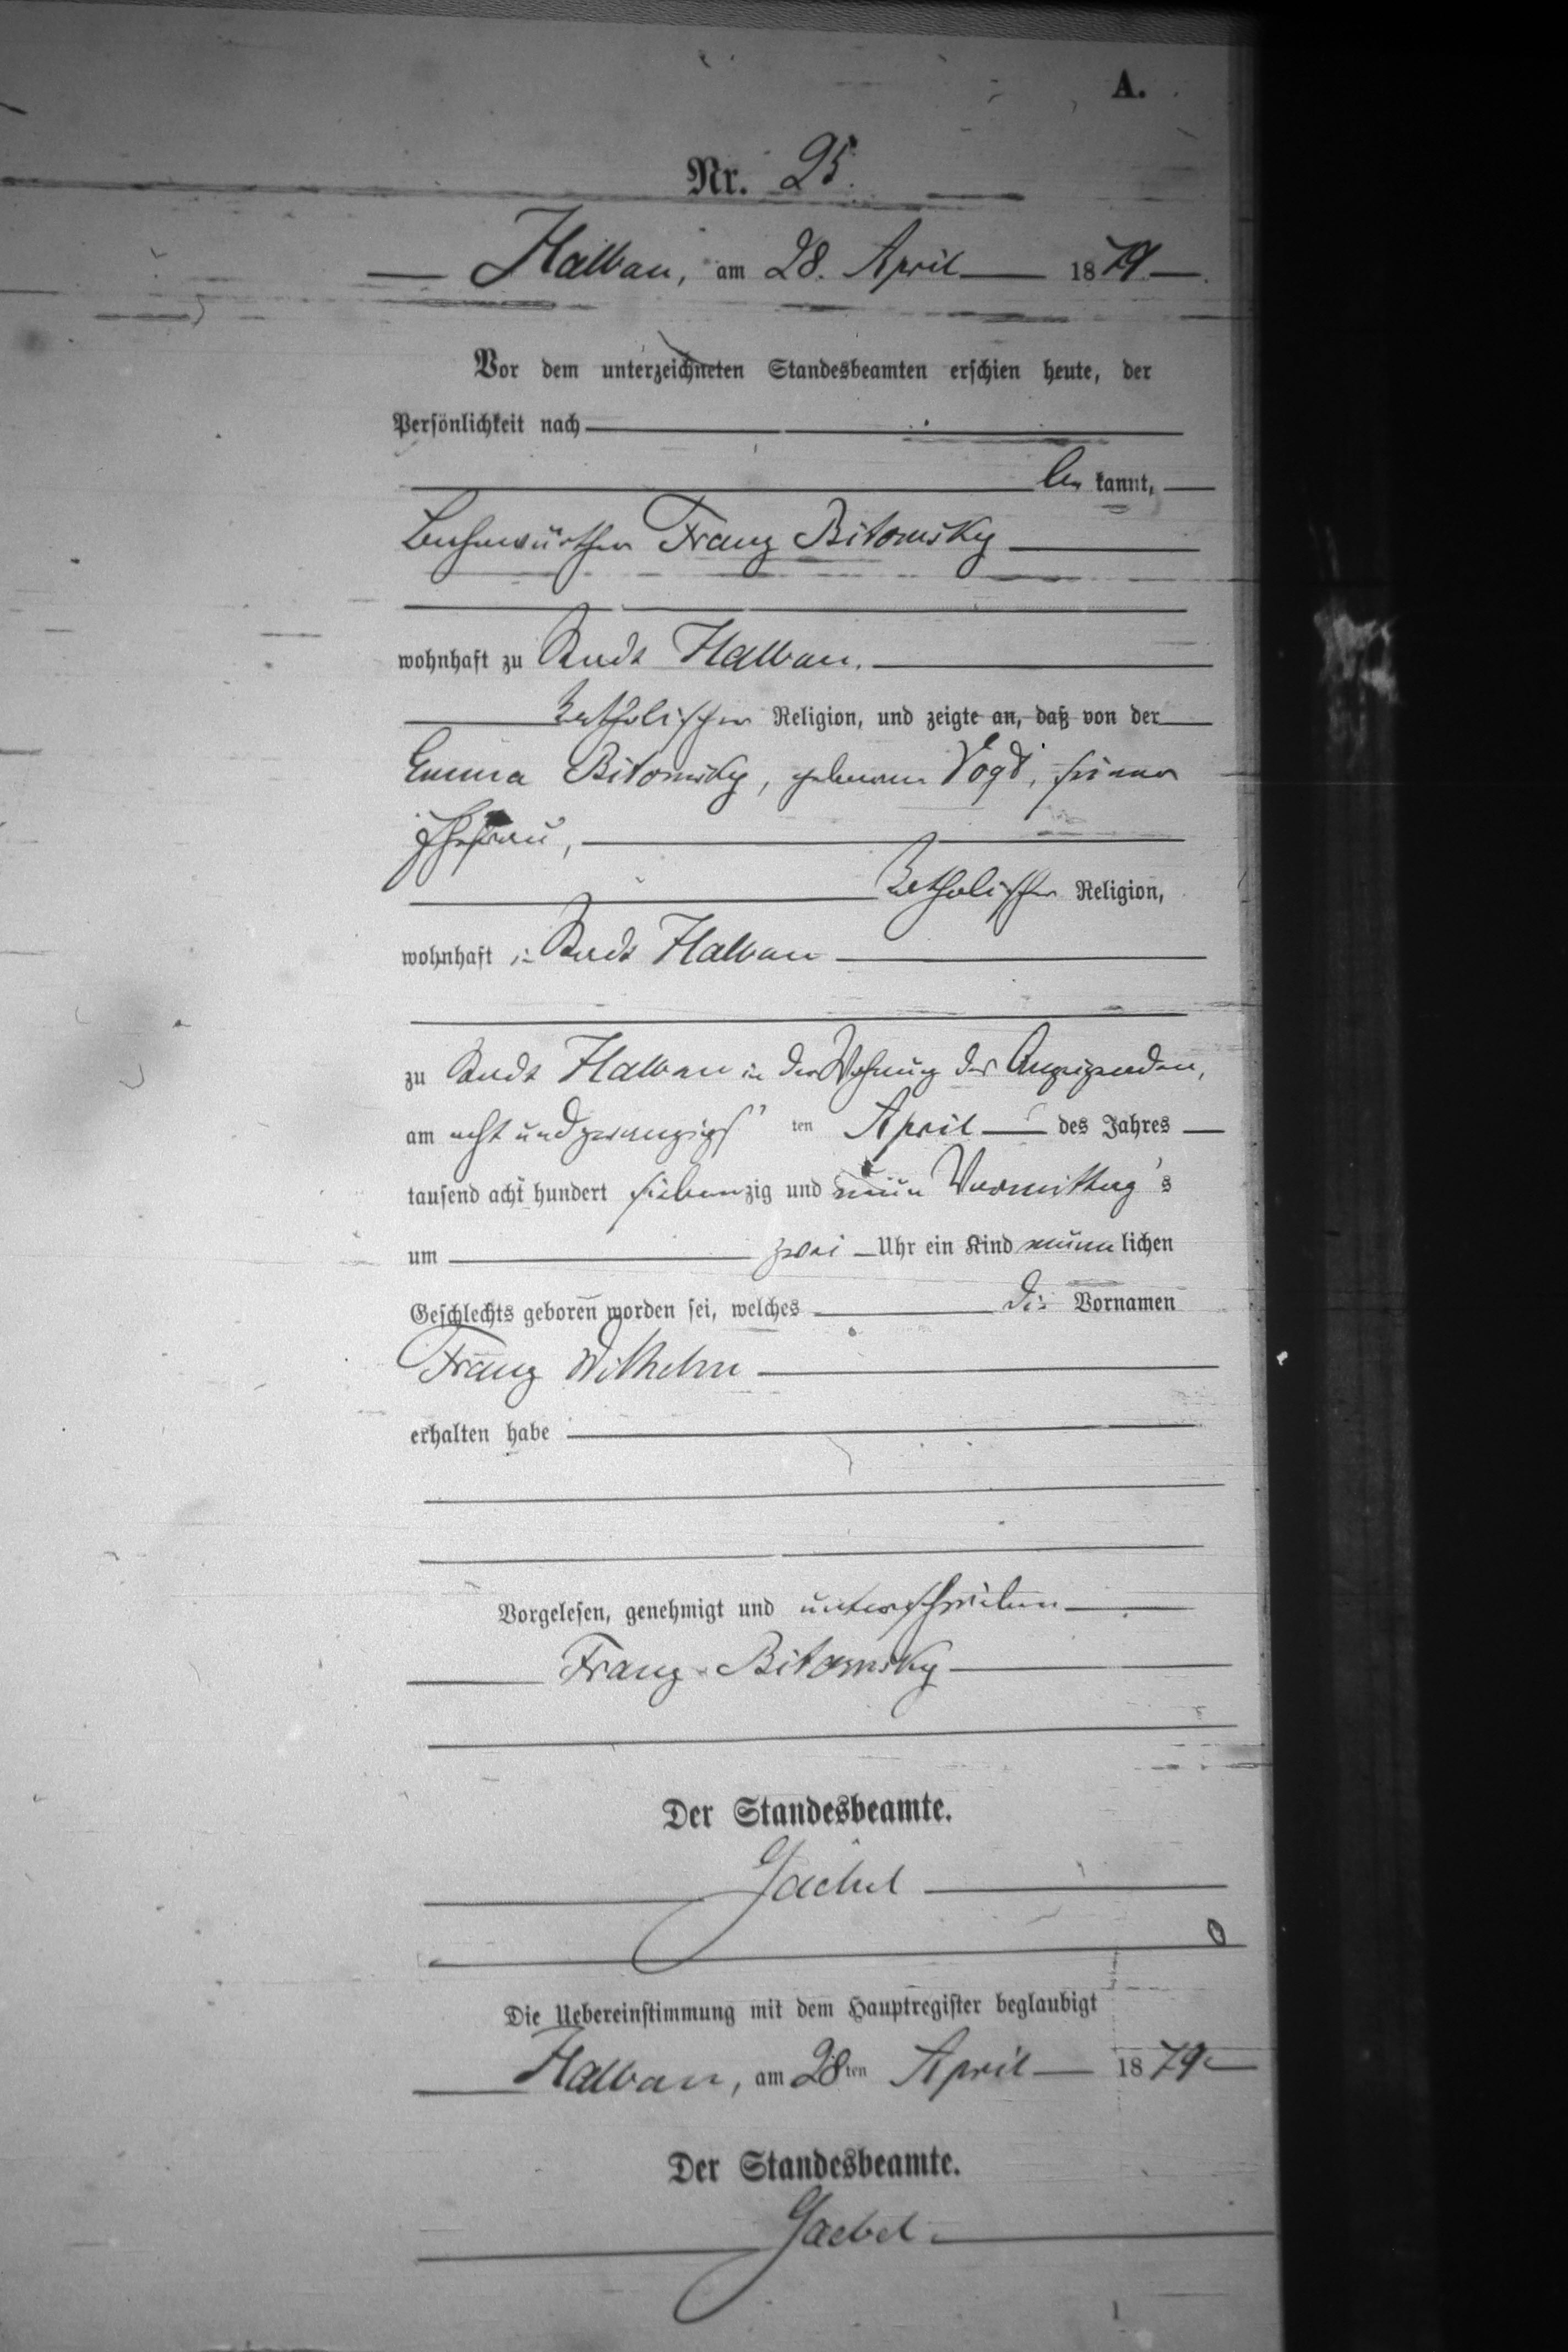 A.
Nr. 25.
Halbau, am 28. April 1879.
Vor dem unterzeichneten Standesbeamten erschien heute, der
Persönlichkeit nach
be kannt,
Bahnwärter Franz Bitomsky
wohnhaft zu Stadt Halbau.
katholischer Religion, und zeigte an, daß von der
Emma Bitomsky, geborene Vogt, seiner
Ehefrau,
katholischer Religion,
wohnhaft in Stadt Halbau
zu Stadt Halbau in der Wohnung des Anzeigenden,
am acht und zwanzigs ten April des Jahres
tausend acht hundert siebenzig und neun Vormittag s
um zwei Uhr ein Kind männ lichen
Geschlechts geboren worden sei, welches die Vornamen
Franz Wilhelm
erhalten habe
Vorgelesen, genehmigt und unterschrieben
Franz Bitomsky
Der Standesbeamte.
Gaebel
Die Uebereinstimmung mit dem Hauptregister beglaubigt
Halbau, am 28ten April 1879
Der Standesbeamte.
Gaebel.